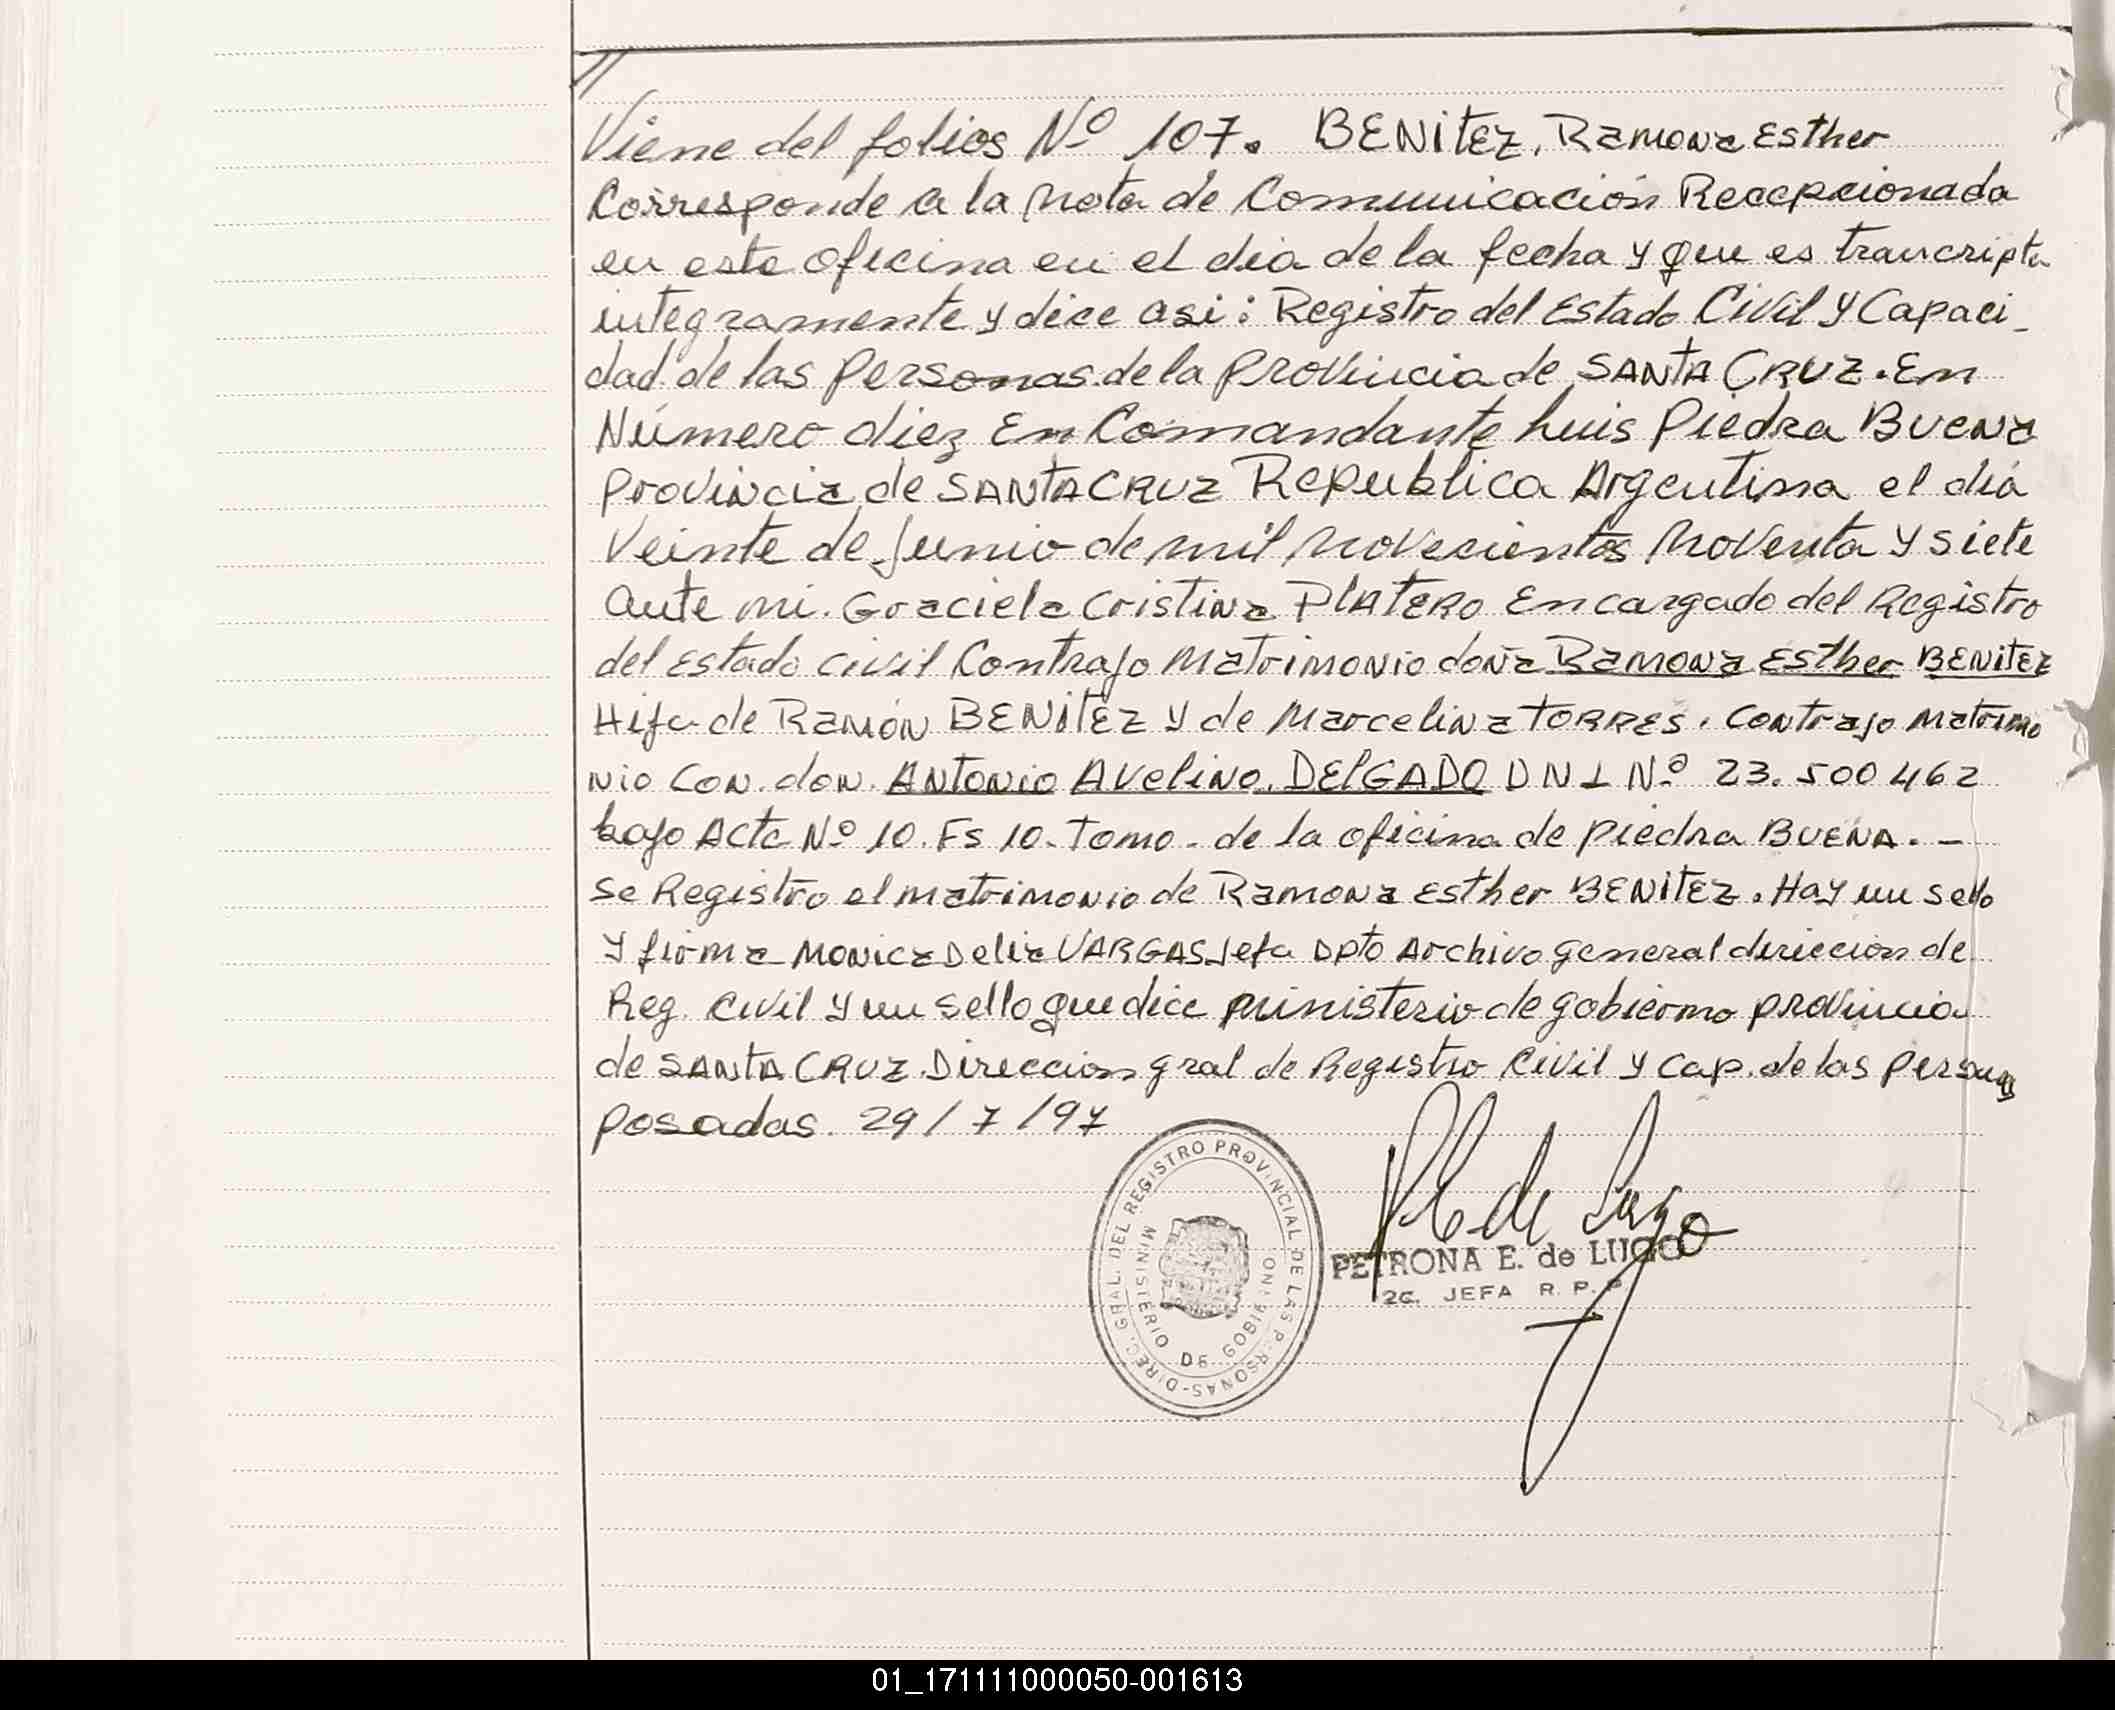 //
Viene del folios Nº 107. BENITEZ, Ramona Esther
Corresponde a la nota de Comunicación Recepcionada
en esta oficina en el día de la fecha y que es transcripta
integramente y dice asi: Registro del Estado Civil y Capaci_
dad de las Personas de la Provincia de SANTA CRUZ. En
Número diez En Comandante Luis Piedra Buena
Provincia de SANTA CRUZ Republica Argentina el día
Veinte de Junio de mil novecientos noventa y siete
ante mi. Graciela Cristina PLATERO Encargado del Registro
del Estado civil Contrajo Matrimonio doña Ramona Esther BENITEZ
Hija de Ramón BENITEZ y de Marcelina TORRES. Contrajo matrimo
nio con don. Antonio Avelino. DELGADO DNI Nº 23.500462
bajo Acta Nº 10. Fs 10. Tomo - de la oficina de Piedra BUENA. -
Se Registro el matrimonio de Ramona Esther BENITEZ. Hay un sello
y firma Monica Delia VARGAS Jefa Dpto Archivo general direccion de
Reg. Civil y un sello que dice ministerio de gobierno provincia
de SANTA CRUZ. Direccion gral de Registro Civil y Cap. de las Personas
Posadas. 29/7/97
DIREC. GRAL. DEL REGISTRO PROVINCIAL DE LAS PERSONAS-
MINISTERIO DE GOBIERNO
PE de Lugo
PETRONA E. de LUGO
2da. JEFA R. P. P.
01_171111000050-001613